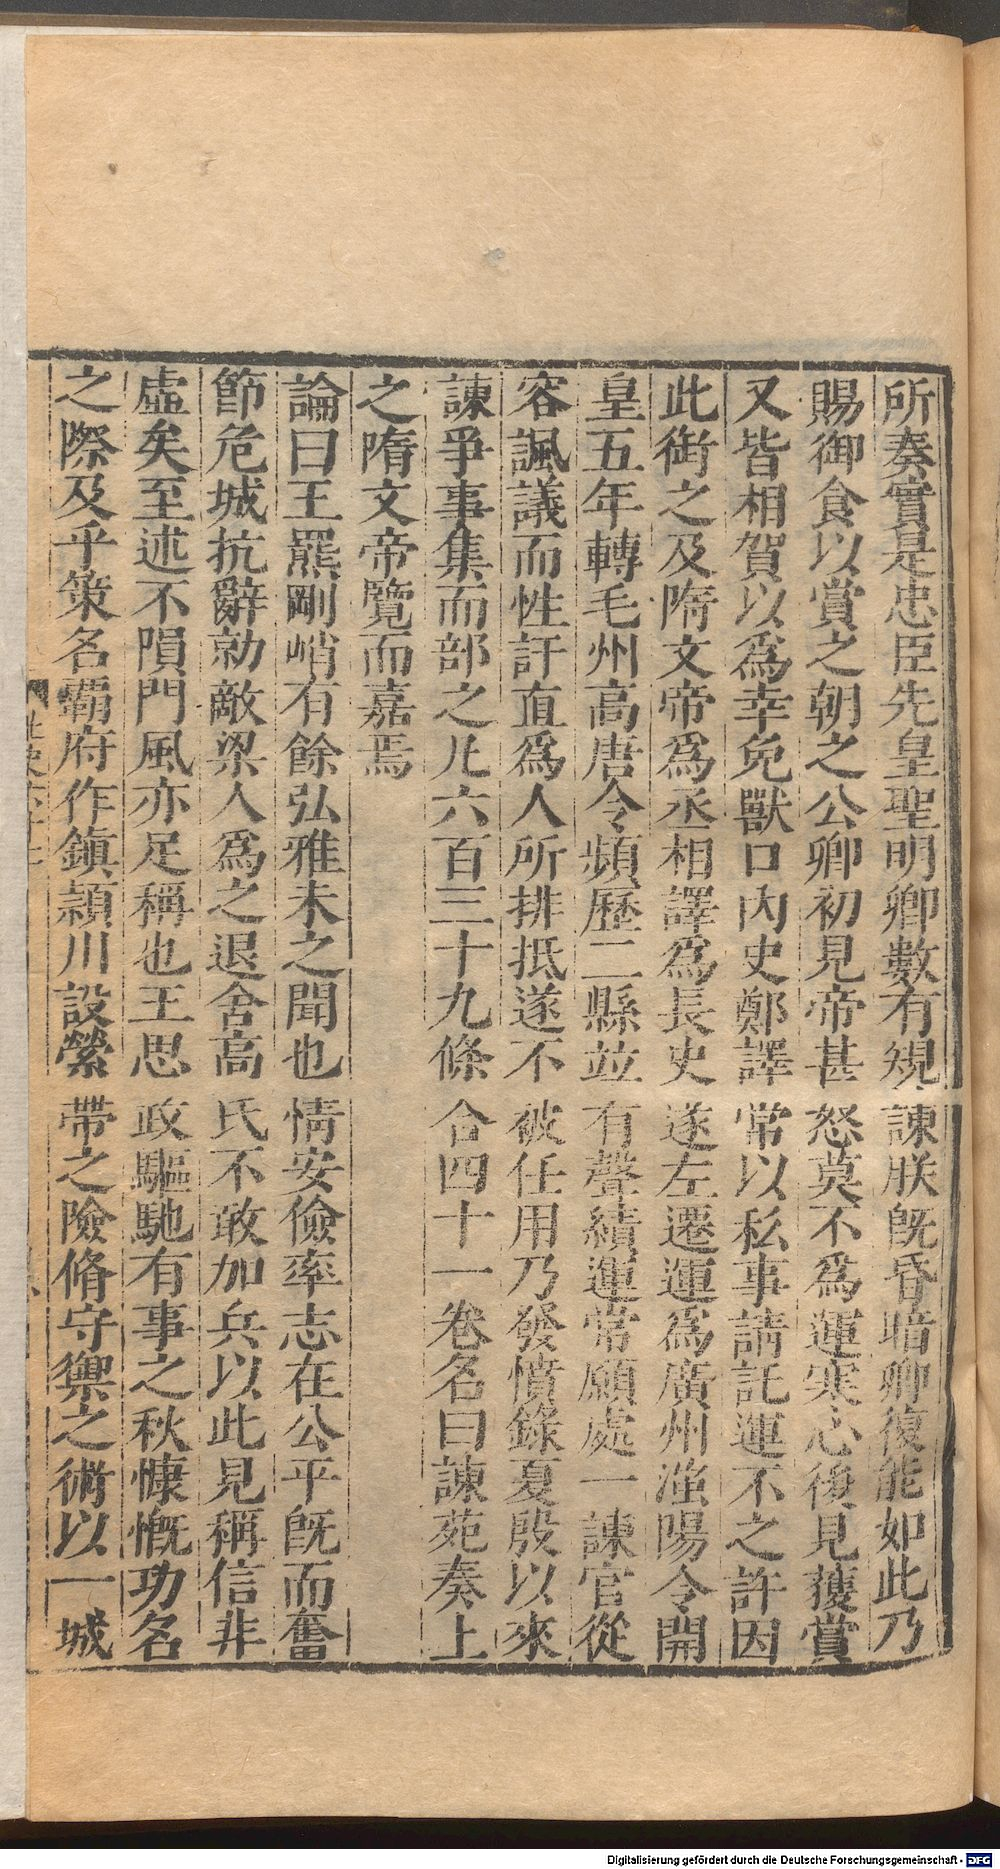 所奏實是忠臣先皇聖明卿數有規諫朕旣昏暗卿復能如此乃
賜御食以賞之朝之公卿初見帝甚怒莫不爲運寒心後見獲賞
又皆相賀以爲幸免獸口內史鄭譯常以私事請託運不之許因
此銜之及隋文帝爲丞相譯爲長史遂左遷運爲廣州滍陽令開
皇五年轉毛州高唐令頻歷二縣竝有聲績運常願處一諫官從
容諷議而性訐直爲人所排抵遂不被任用乃發憤錄夏殷以來
諫爭事集而部之凡六百三十九條合四十一卷名曰諫苑奏上
之隋文帝覽而嘉焉
論曰王羆剛峭有餘弘雅未之聞也情安儉率志在公平旣而奮
節危城抗辭勍敵梁人爲之退舍高氏不敢加兵以此見稱信非
虛矣至述不隕門風亦足稱也王思政驅馳有事之秋慷慨功名
之際及乎策名霸府作鎭潁川設縈帶之險脩守禦之術以一城
Digitalisierung gefördert durch die Deutsche Forschungsgemeinschaft - DFG